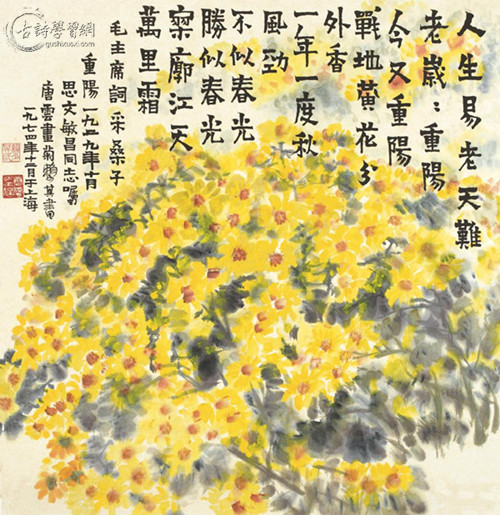 古詩學習網
gushixuexi.com
人生易老天難
老歲〻重陽
今又重陽
戰地黃花分
外香
一年一度秋
風勁
不似春光
勝似春光
寥廓江天
萬里霜
毛主席詞 采桑子
重陽 一九二九年十月
思文敏昌同志囑
唐雲畫菊 其書
一九七四年十月于上海